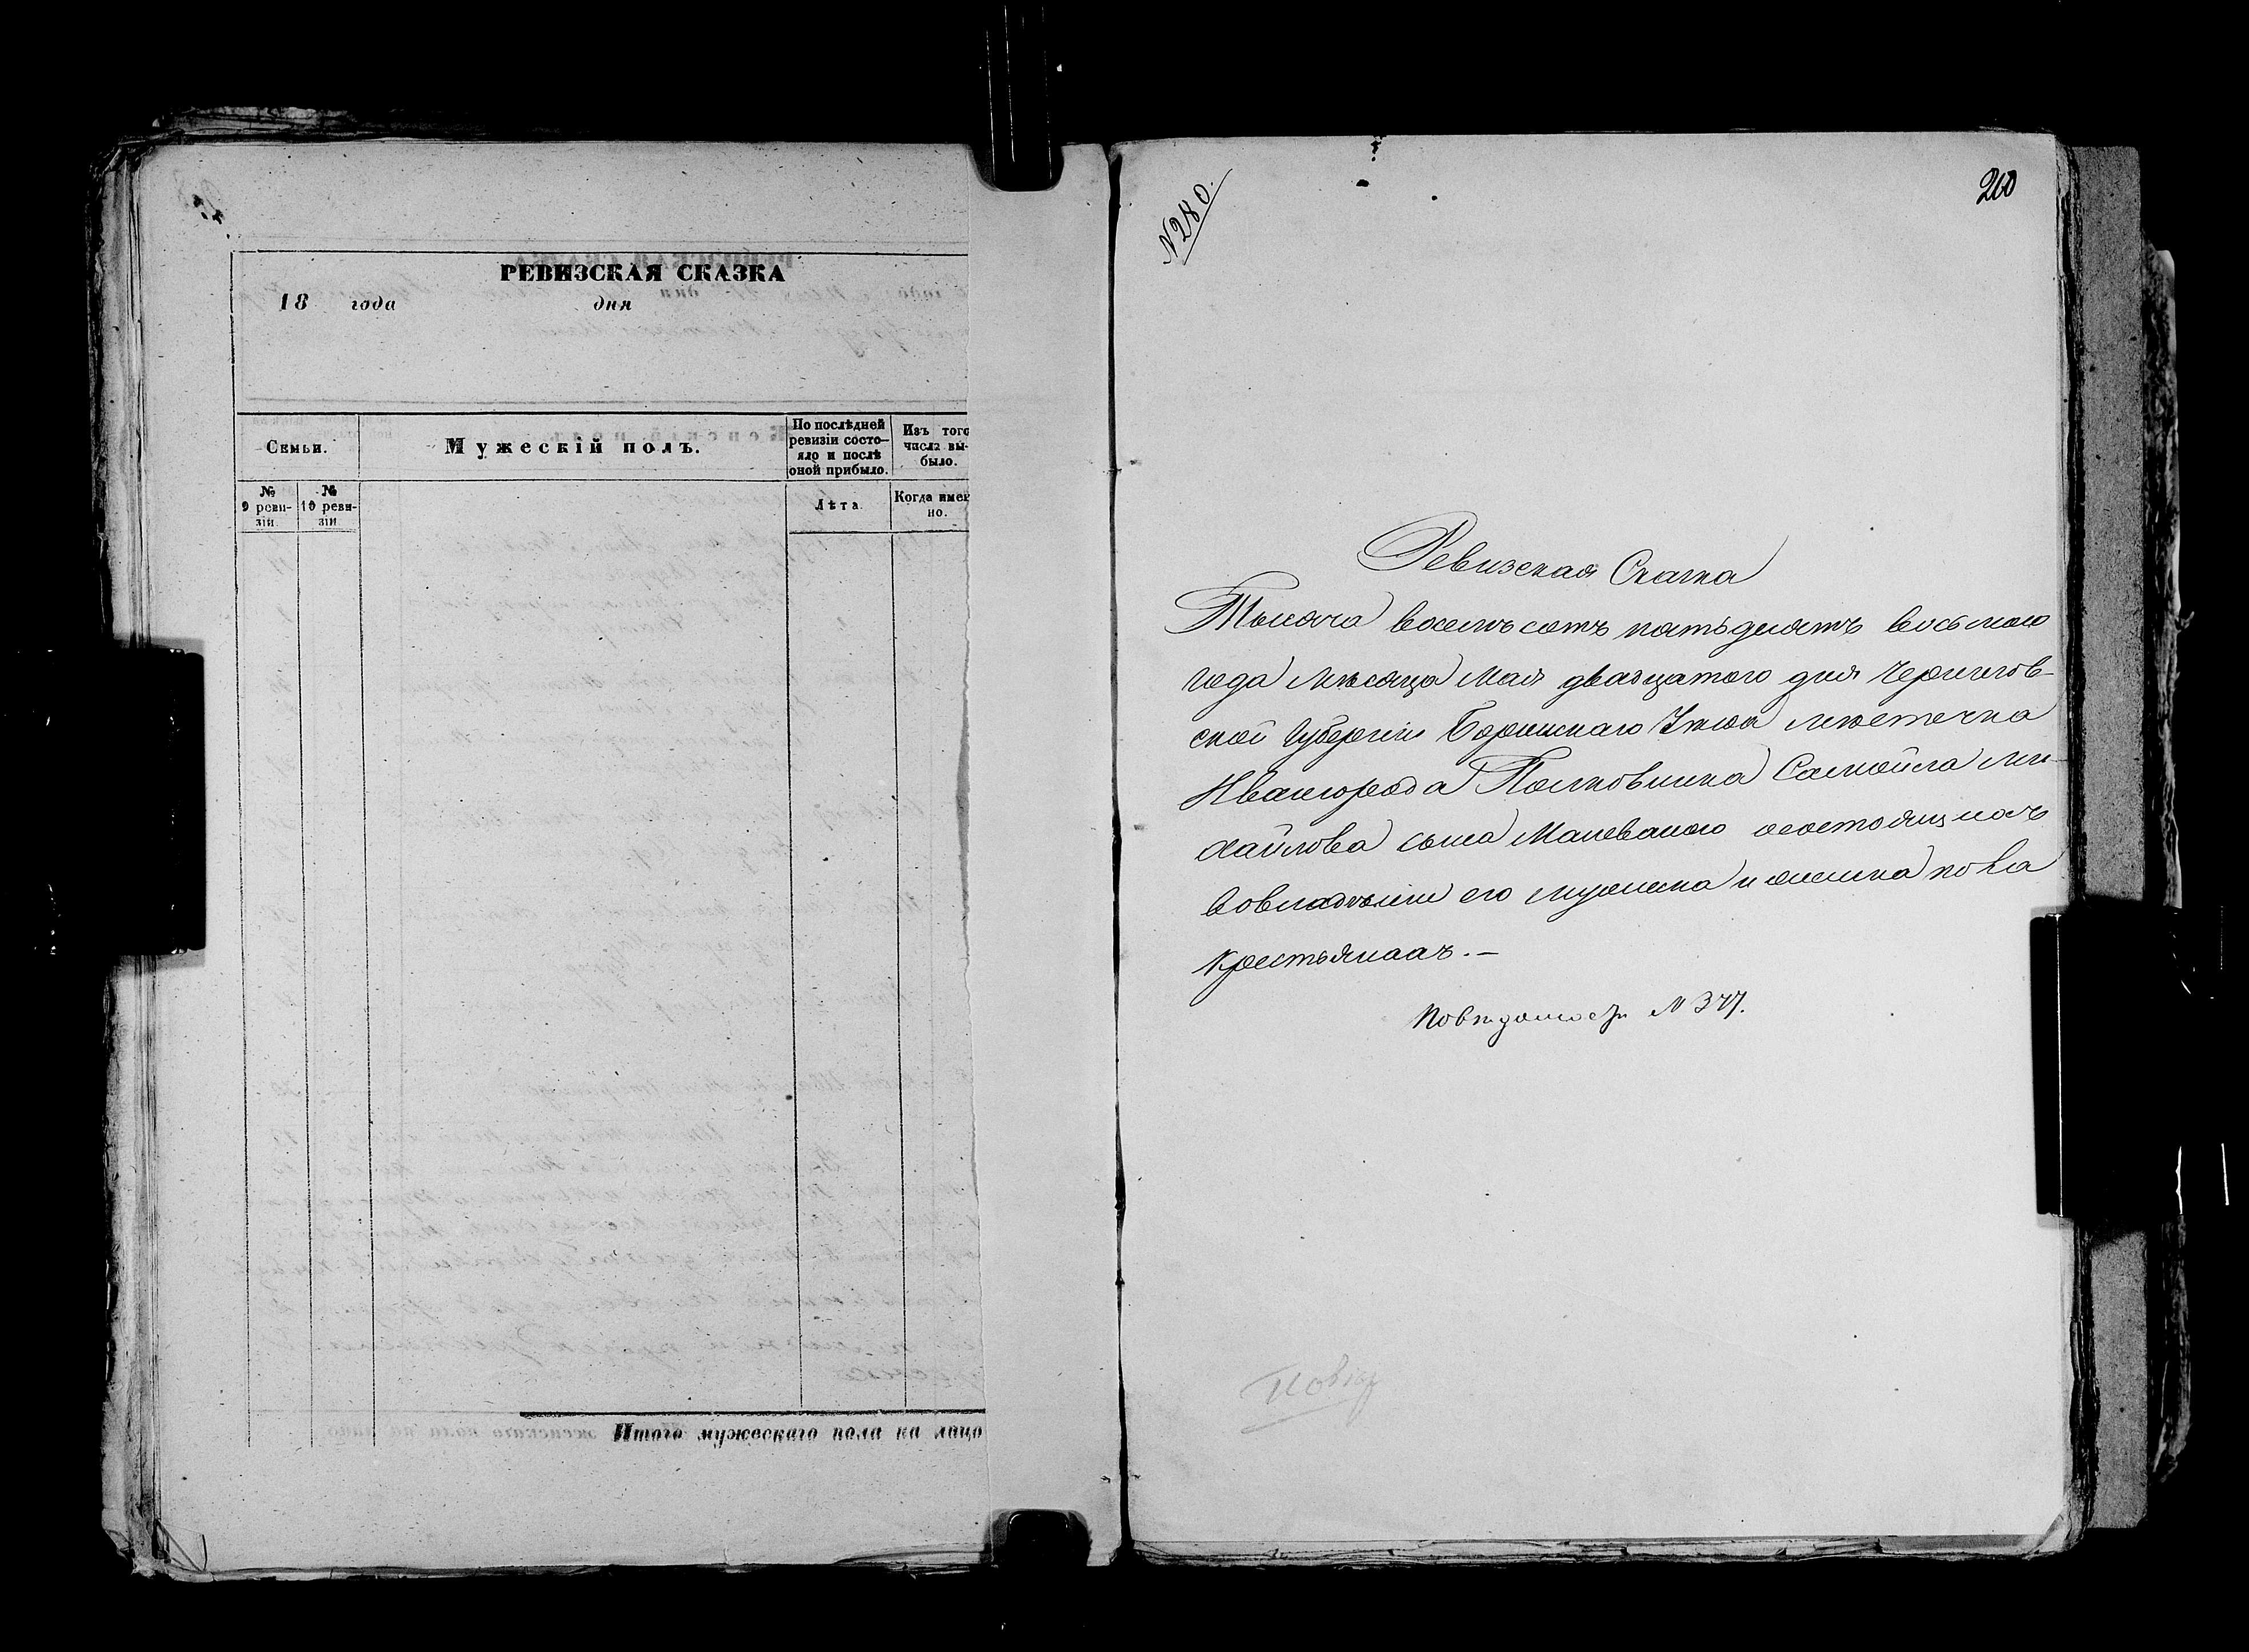 РЕВИЗСКАЯ СКАЗКА
18 года дня
Семьи.
Мужескій полъ.
По послѣдней ревизіи состо-
яло и послѣ
оной прибыло.
Изъ того
числа вы-
было.
№
9 реви-
зіи.
№
10 реви-
зіи
Лѣта.
Когда имен
но.
Итого мужескаго пола на лицо
№280.
210
Ревизская Сказка
Тысяча восемьсотъ пятьдесятъ восьмого
года мѣсяца Мая двадцатого дня Чернигов-
ской Губерніи Борзнскаго Уѣзда местечка
Ивангорода Полковника Самойла Ми-
хайлова сына Маневаного осостоящихъ
вовладѣніи его мужеска и женска пола
крестьянахъ.—
№ 377.